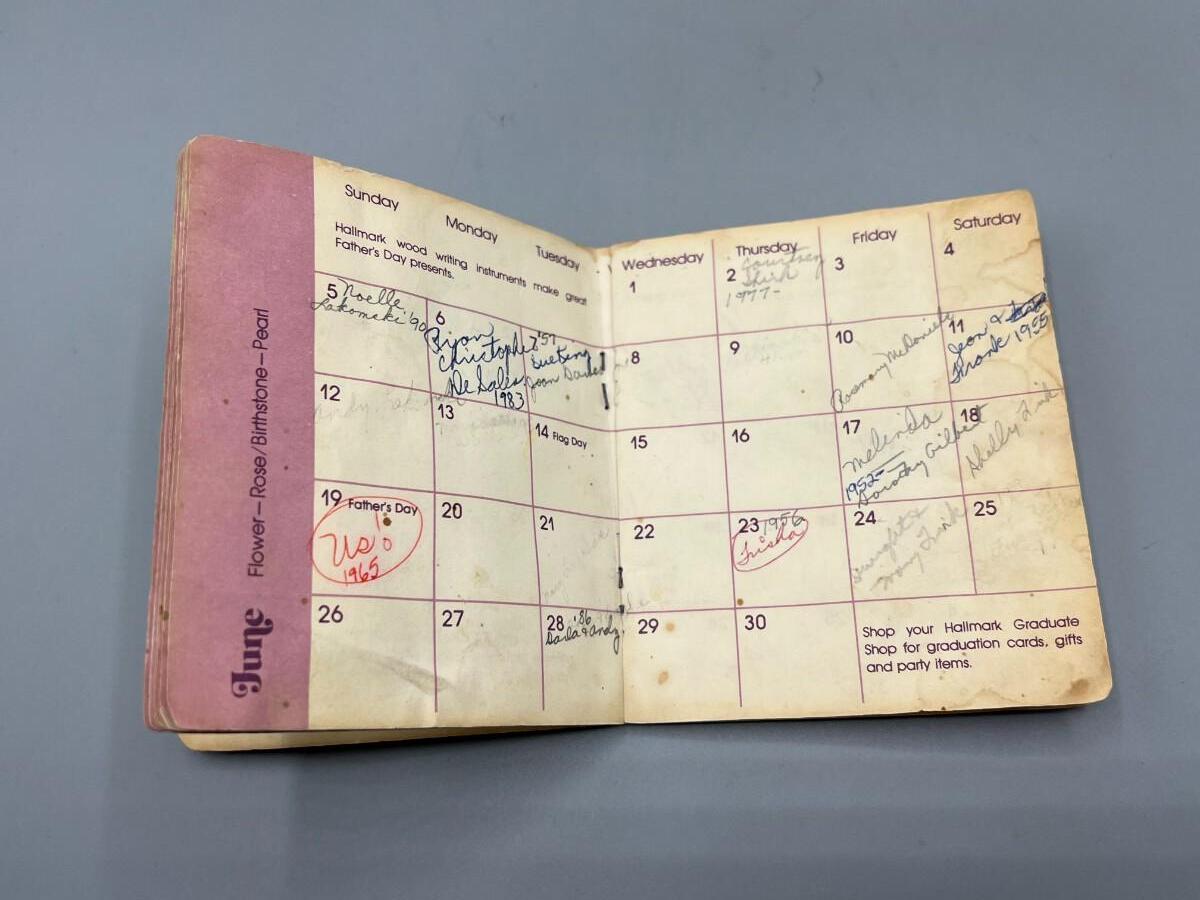 June
Flower—Rose/Birthstone—Pearl
Sunday
Monday
Tuesday
Wednesday
Thursday
Friday
Saturday
Hallmark wood writing instruments make great
Father's Day presents.
1
2 Courtney
Shirk
1977-
3
4
5 Noelle
Lakomski '90
6
Brian
Christopher
DeSales
1983
7 '57
Sueting
Joan Daniel
8
9
10
Rosemary McDaniels
11
Jean &
Frank 1955
12
13
14 Flag Day
15
16
17
Melinda
1952-
Dorothy Gilbert
18
Shelly Fink
19 Father's Day
Us!
1965
20
21
22
23 1956
Trisha
24
Dwight &
Mary Fink
25
26
27
28 '86
Darla & Andy
29
30
Shop your Hallmark Graduate
Shop for graduation cards, gifts
and party items.